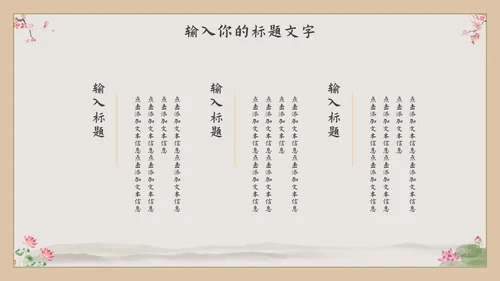 输入你的标题文字
输入标题
点击添加文本信息点击添加文本信息
点击添加文本信息
点击添加文本信息点击添加文本信息
点击添加文本信息点击添加文本信息
输入标题
点击添加文本信息点击添加文本信息
点击添加文本信息点击添加文本信息
点击添加文本信息
点击添加文本信息点击添加文本信息
输入标题
点击添加文本信息点击添加文本信息
点击添加文本信息
点击添加文本信息
点击添加文本信息点击添加文本信息